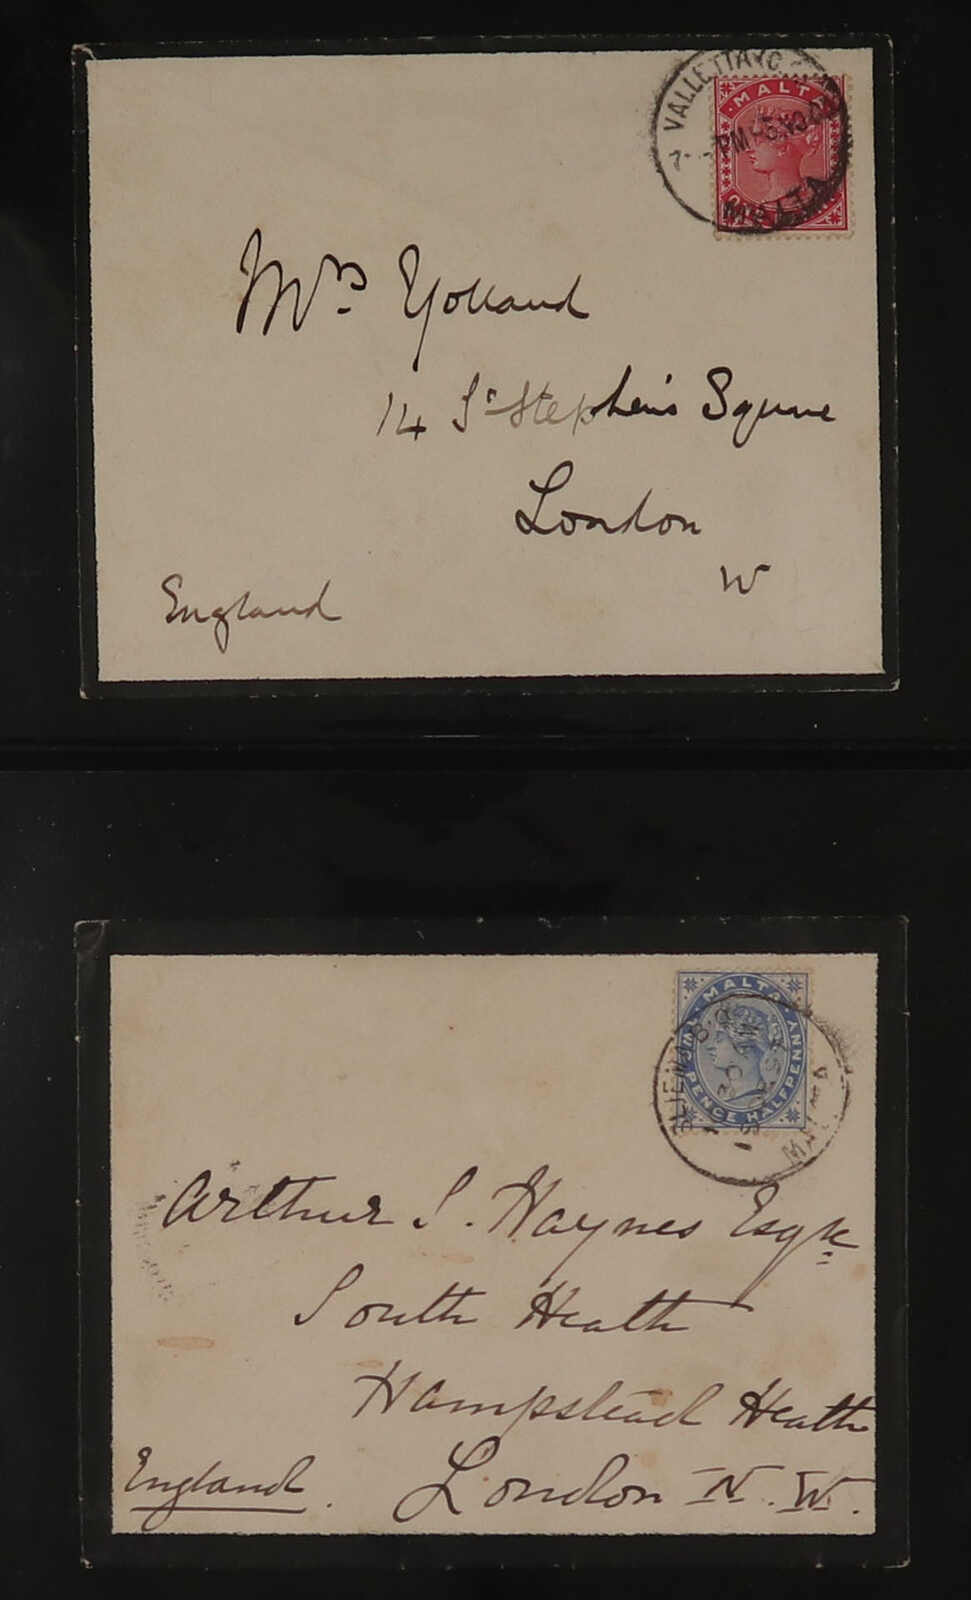 VALLETTA
MALTA
PM
MALTA
Mrs. Yolland
14 St Stephen's Square
London
W
England
SLIEMA B.O
MALTA
MALTA
TWO PENCE HALFPENNY
Arthur S. Haynes Esqre
South Heath
Hampstead Heath
England. London N. W.